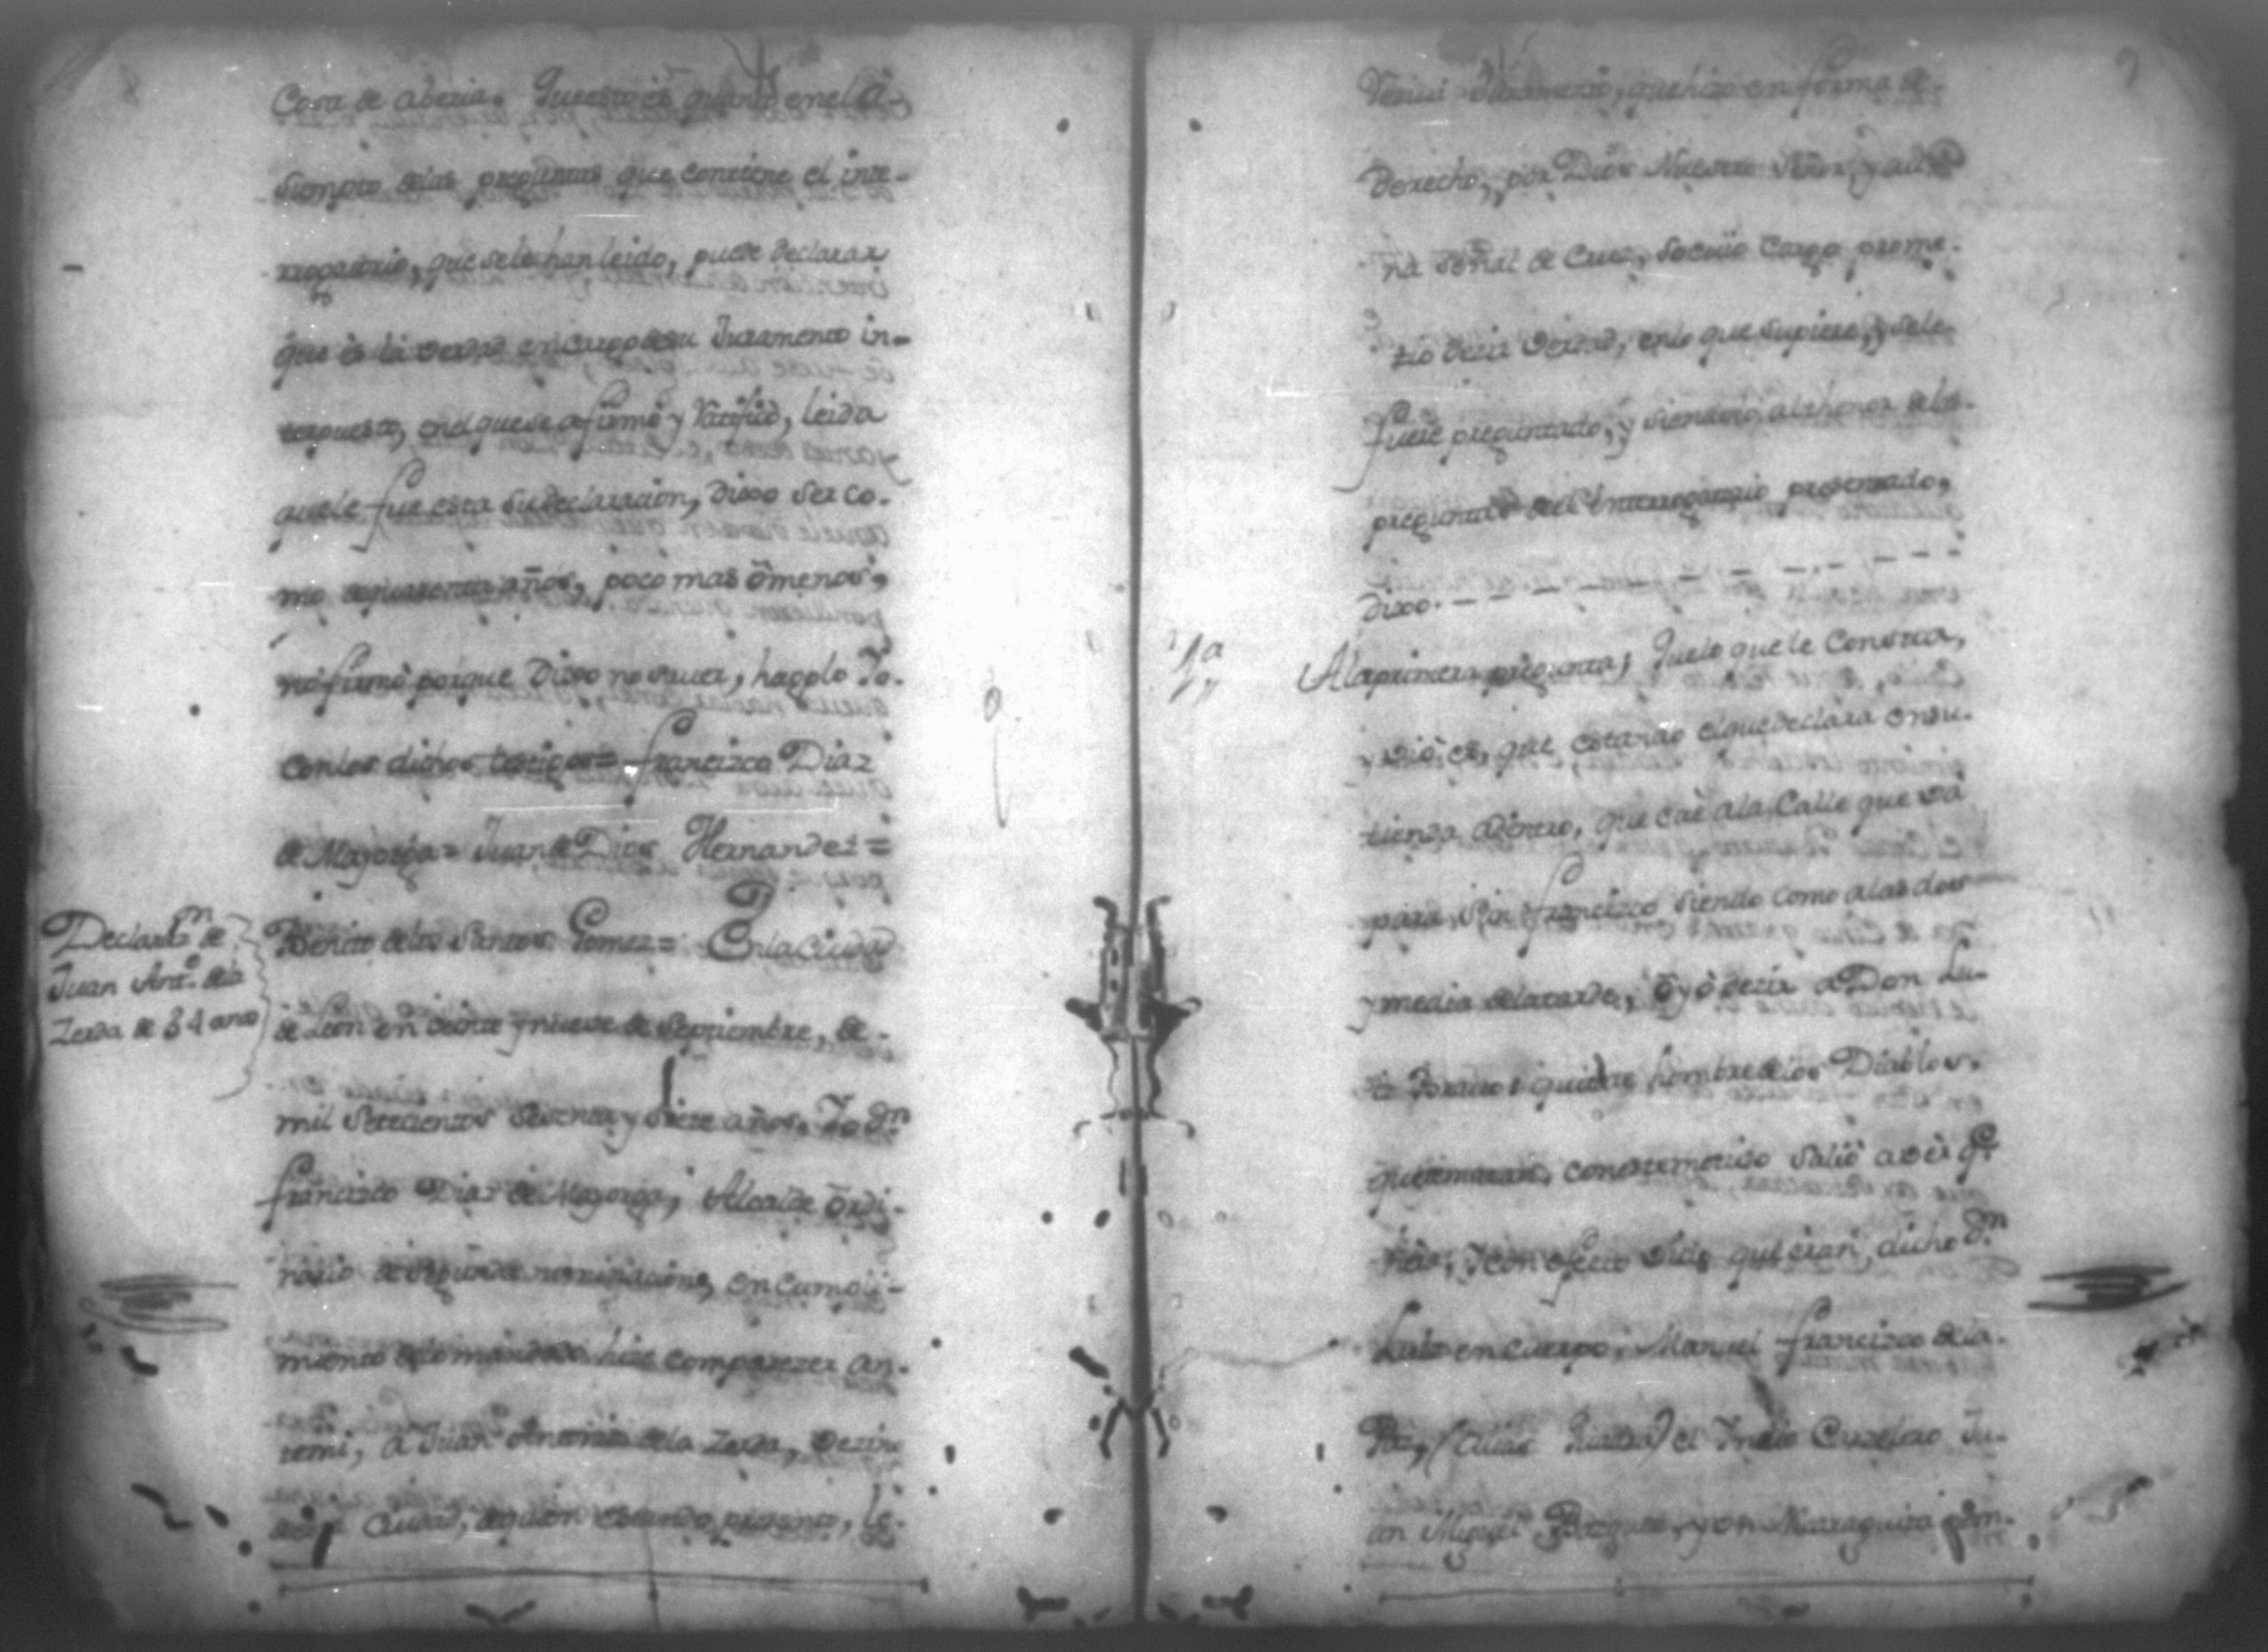 Cosa de aberia. Que esto es quanto en el a-
sumpto de las preguntas que contiene el inte-
rrogatorio, que se le han leido, puede declarar
que ès la verdad en cargo de su Juramento in-
terpuesto, en el que se afirmò y ratificò, leida
que le fue esta su declaracion, dixo ser co-
mo de quarenta años, poco mas òmenos,
no firmò porque Dixo no saver, hagolo Yo
con los dichos testigos= francisco Diaz
de Mayorga= Juan de Dios Hernandez=
Benito de los Santos Gomez= En la Ciudad
de Leon en veinte y nueve de Septiembre, de
mil Setecientos Sesenta y Siete años. Yo Dn.
francisco Diaz de Mayorga, Alcalde òrdi-
nario de segunda nominacion, en cumpli-
miento de lo mandado hize comparezer an-
temi, à Juan Antonio de la Zerda, vezino
Ciudad, de quien estando presente, le
Declarn. de
Juan Anto. de la
Zerda de 34 años
Juramento, que hizo en forma de
derecho, por Dios Nuestro Señor, y a u
na Señal de Cruz, Socuio Cargo prome-
tio decir Verdad, en lo que Supiere, y Sele
fuere preguntado, y siendolo, al thenor de las
preguntas del Interrogatorio presentado,
dixo.
1a
A la primera pregunta, Que lo que le Consta,
y viò ès, que estando el que declara en su
tienda adentro, que caè a la Calle que và
para Sn. francisco Siendo como a las dos
y media de la tarde, òyò decir a Don Lu-
hombre de los Diablos,
con este motivo Saliò a vèr
y con efecto vido que eran, dicho Dn.
Luis en cuerpo, Manuel francisco de la
Paz, (alias ) el Indio Ju-
an Miguel y